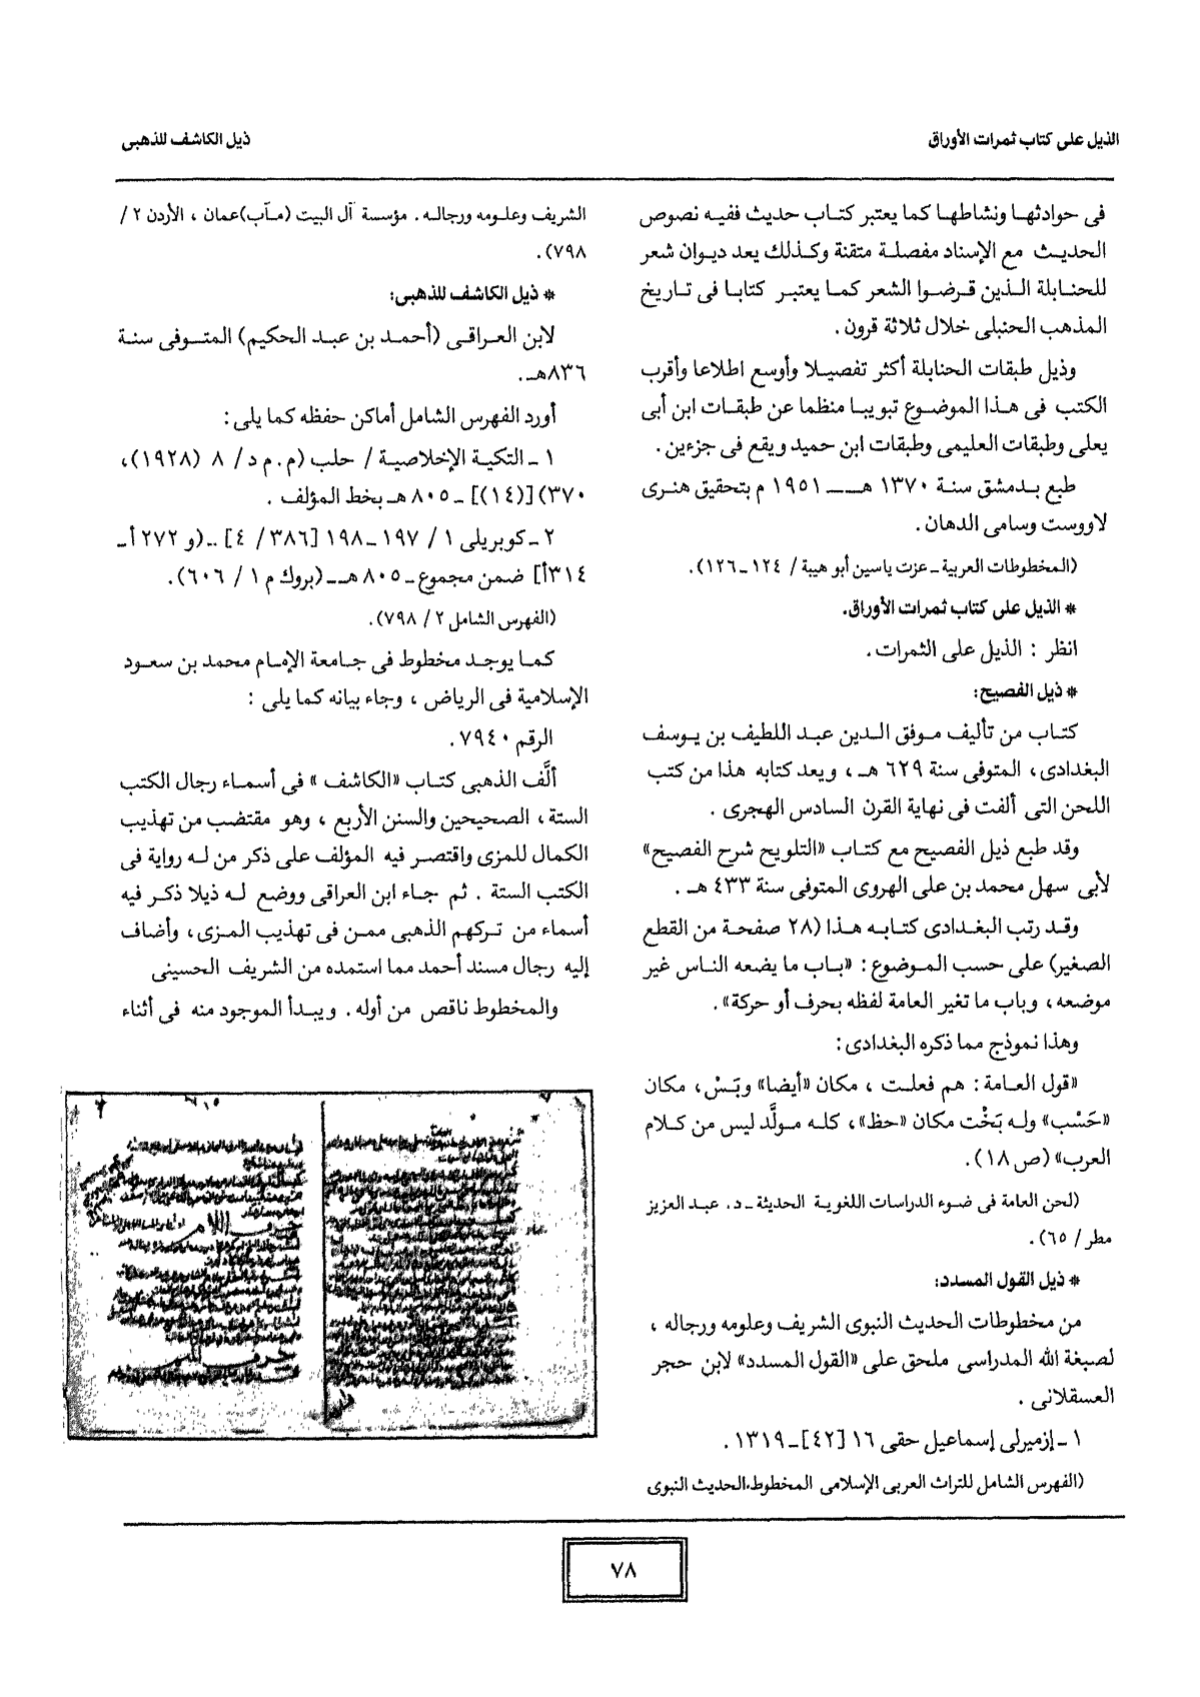 الذيل على كتاب ثمرات الأوراق
ذيل الكاشف للذهبى
فى حوادثها ونشاطها كما يعتبر كتاب حديث ففيه نصوص
الحديث مع الإسناد مفصلة متقنة وكذلك يعد ديوان شعر
للحنابلة الذين قرضوا الشعر كما يعتبر كتابا فى تاريخ
المذهب الحنبلى خلال ثلاثة قرون.
وذيل طبقات الحنابلة أكثر تفصيلا وأوسع اطلاعا وأقرب
الكتب فى هذا الموضوع تبويبا منظما عن طبقات ابن أبى
يعلى وطبقات العليمى وطبقات ابن حميد ويقع فى جزءين.
طبع بدمشق سنة ١٣٧٠ هـ ـ ١٩٥١ م بتحقيق هنرى
لاووست وسامى الدهان.
(المخطوطات العربية ـ عزت ياسين أبو هيبة / ١٢٤ ـ ١٢٦).
* الذيل على كتاب ثمرات الأوراق.
انظر : الذيل على الثمرات.
* ذيل الفصيح:
كتاب من تأليف موفق الدين عبد اللطيف بن يوسف
البغدادى، المتوفى سنة ٦٢٩ هـ ، ويعد كتابه هذا من كتب
اللحن التى ألفت فى نهاية القرن السادس الهجرى .
وقد طبع ذيل الفصيح مع كتاب «التلويح شرح الفصيح»
لأبى سهل محمد بن على الهروى المتوفى سنة ٤٣٣ هـ .
وقد رتب البغدادى كتابه هذا (٢٨ صفحة من القطع
الصغير) على حسب الموضوع : «باب ما يضعه الناس غير
موضعه، وباب ما تغير العامة لفظه بحرف أو حركة».
وهذا نموذج مما ذكره البغدادى:
«قول العامة : هم فعلت ، مكان «أيضا» وبَسْ، مكان
«حَسْب» وله بَخْت مكان «حظ»، كله مولَّد ليس من كلام
العرب» (ص ١٨).
(لحن العامة فى ضوء الدراسات اللغوية الحديثة ـ د. عبد العزيز
مطر / ٦٥).
* ذيل القول المسدد:
من مخطوطات الحديث النبوى الشريف وعلومه ورجاله ،
لصبغة الله المدراسى ملحق على «القول المسدد» لابن حجر
العسقلانى .
١ ـ إزميرلى إسماعيل حقى ١٦ [٤٢] ـ ١٣١٩ .
(الفهرس الشامل للتراث العربى الإسلامى المخطوط،الحديث النبوى
الشريف وعلومه ورجاله. مؤسسة آل البيت (مآب)عمان ، الأردن ٢ /
٧٩٨).
* ذيل الكاشف للذهبى:
لابن العراقى (أحمد بن عبد الحكيم) المتوفى سنة
٨٣٦هـ.
أورد الفهرس الشامل أماكن حفظه كما يلى :
١ ـ التكية الإخلاصية / حلب (م. م د / ٨ (١٩٢٨)،
٣٧٠) [(١٤)] ـ ٨٠٥ هـ بخط المؤلف .
٢ ـ كوبريلى ١ / ١٩٧ ـ ١٩٨ [٣٨٦ / ٤] ـ (و ٢٧٢ أ ـ
٣١٤أ] ضمن مجموع ـ ٨٠٥ هـ ـ (بروك م ١ / ٦٠٦).
(الفهرس الشامل ٢ / ٧٩٨).
كما يوجد مخطوط فى جامعة الإمام محمد بن سعود
الإسلامية فى الرياض ، وجاء بيانه كما يلى :
الرقم ٧٩٤٠.
ألَّف الذهبى كتاب «الكاشف » فى أسماء رجال الكتب
الستة، الصحيحين والسنن الأربع ، وهو مقتضب من تهذيب
الكمال للمزى واقتصر فيه المؤلف على ذكر من له رواية فى
الكتب الستة . ثم جاء ابن العراقى ووضع له ذيلا ذكر فيه
أسماء من تركهم الذهبى ممن فى تهذيب المزى، وأضاف
إليه رجال مسند أحمد مما استمده من الشريف الحسينى
والمخطوط ناقص من أوله . ويبدأ الموجود منه فى أثناء
٧٨